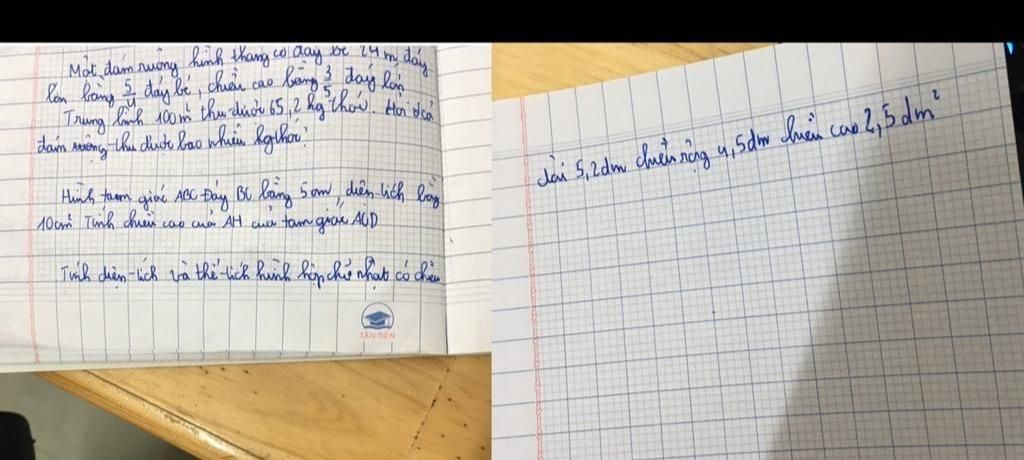 Một đám ruộng hình thang có đáy bé 24 m, đáy
lớn bằng 5/4 đáy bé, chiều cao bằng 3/5 đáy lớn
Trung bình 100m² thu được 65,2 kg thóc. Hỏi cả
đám ruộng thu được bao nhiêu kg thóc?
Hình tam giác ABC Đáy BC bằng 5cm, diện tích bằng
10cm² Tính chiều cao của AH của tam giác
Tính diện tích và thể tích hình hộp chữ nhật có chiều
TÂN TIẾN
dài 5,2dm chiều rộng 4,5dm chiều cao 2,5 dm²